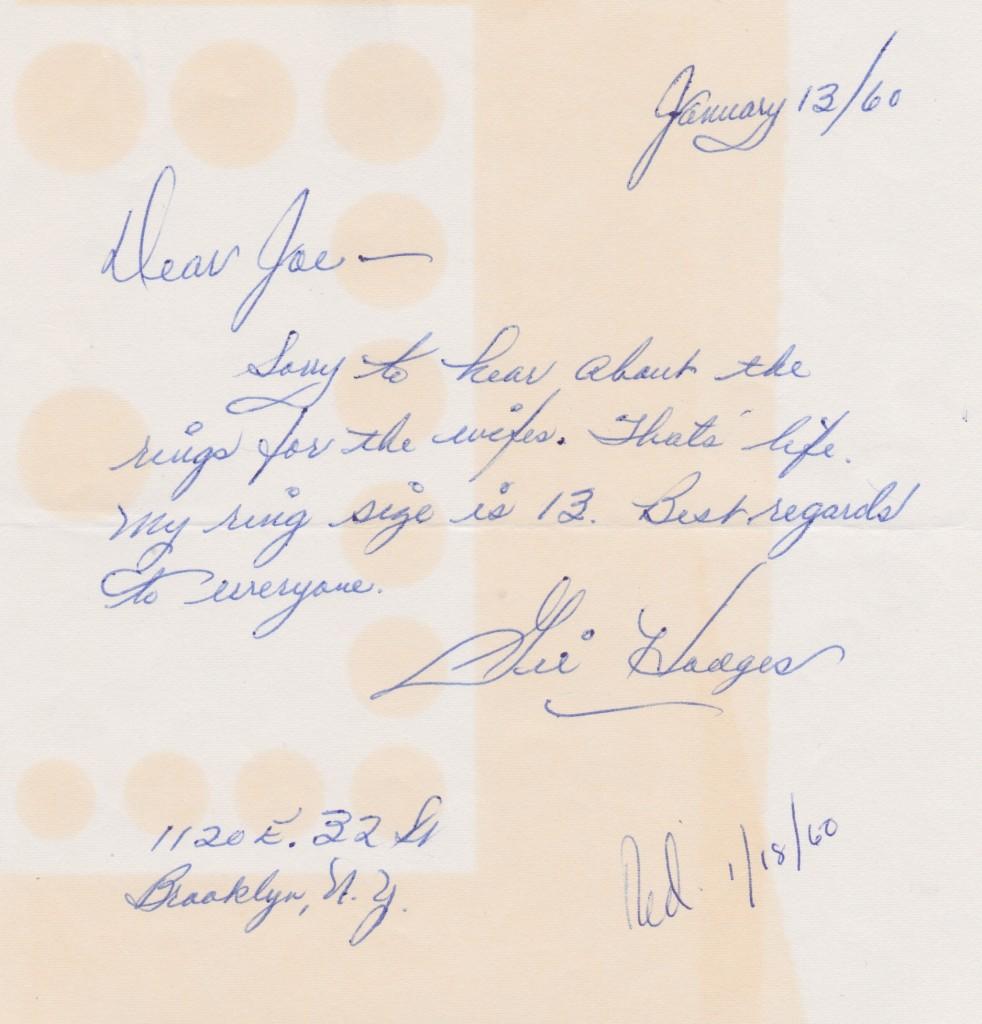 January 13/60
Dear Joe —
Sorry to hear about the
rings for the wifes. Thats' life.
My ring size is 13. Best regards
to everyone.
Gil Hodges
1120 E. 32 St
Brooklyn, N.Y.
Red. 1/18/60